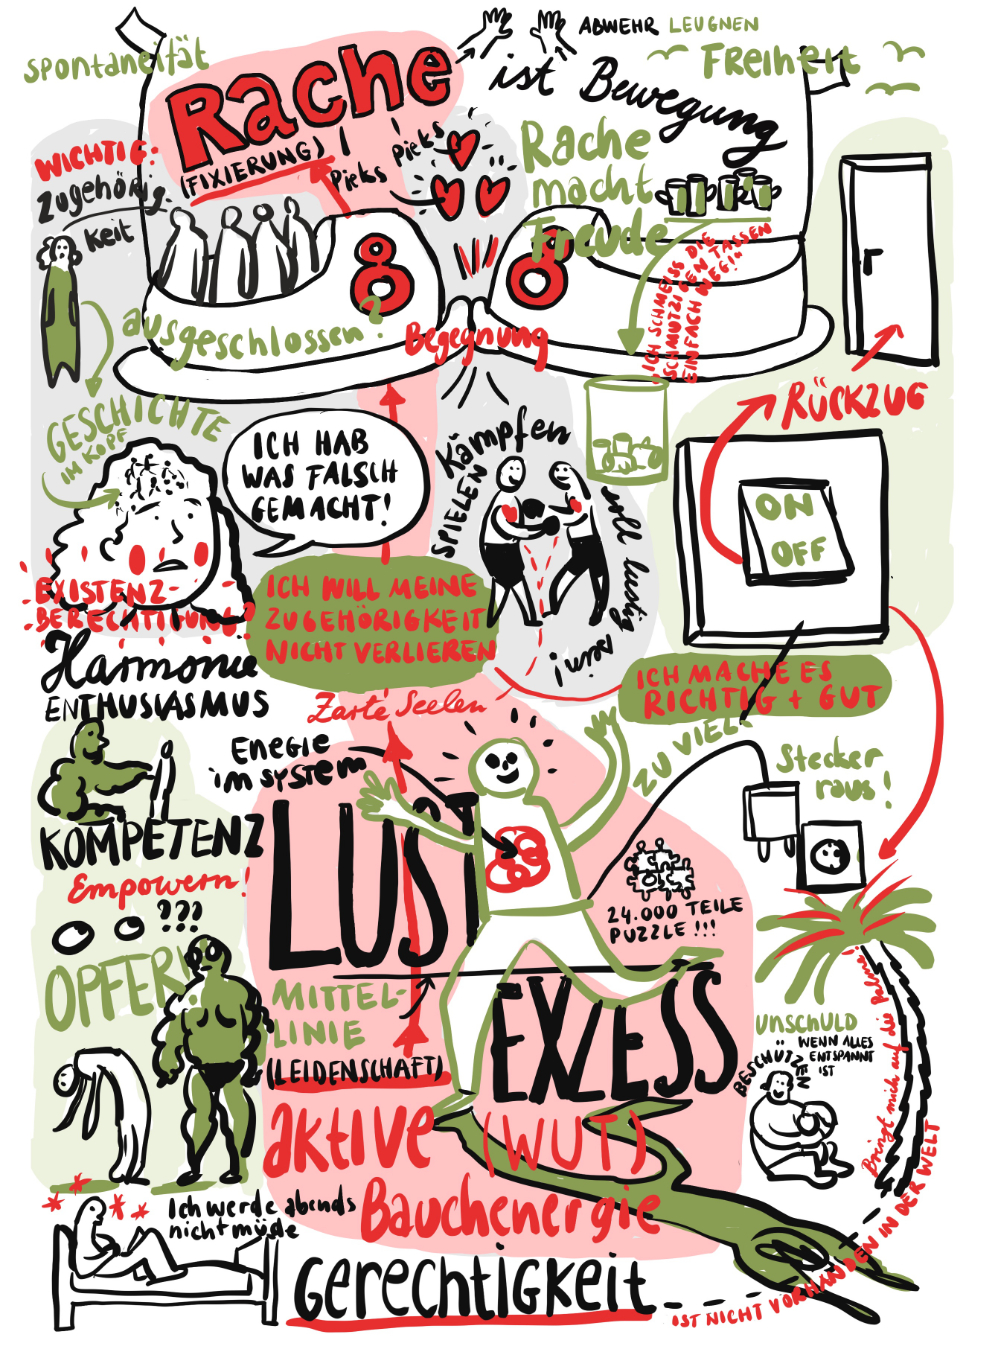 ABWEHR LEUGNEN
Spontaneität
Rache
(FIXIERUNG)
ist Bewegung
FREIHEIT
Pieks
Pieks
Rache
macht
Freude
WICHTIG:
Zugehörig-
keit
8
8
ausgeschlossen?
Begegnung
ICH SCHMEISS DIE
SCHMUTZIGEN TASSEN
EINFACH WEG!"
RÜCKZUG
GESCHICHTE
IM KOPF
ICH HAB
WAS FALSCH
GEMACHT!
Kämpfen
SPIELEN
voll lustig
sein!
ON
OFF
EXISTENZ-
BERECHTIGUNG?
ICH WILL MEINE
ZUGEHÖRIGKEIT
NICHT VERLIEREN
Harmonie
ENTHUSIASMUS
Zarte Seelen
ICH MACHE ES
RICHTIG + GUT
ZU VIEL
Stecker
raus!
ENEGIE
im SYSTEM
KOMPETENZ
Empowern!
???
OPFER!
LUST
24.000 TEILE
PUZZLE!!!
MITTEL-
LINIE
(LEIDENSCHAFT)
EXZESS
UNSCHULD
BESCHÜTZEN
WENN ALLES
ENTSPANNT
IST
Bringt mich auf die Palme
aktive (WUT)
Bauchenergie
Ich werde abends
nicht müde
Gerechtigkeit
IST NICHT VORHANDEN IN DER WELT